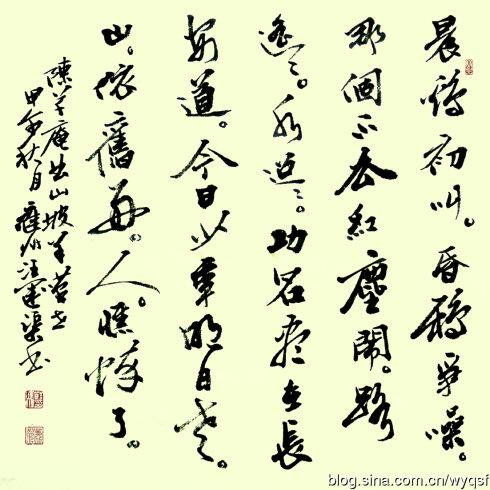 晨鷄初叫。昏鴉爭噪。
那個不去紅塵鬧。路
遙〻。水迢〻。功名尽在長
安道。今日少年明日老。
山。依舊好。人。憔悴了。
陳草庵山坡羊
甲午秋月雍州汪運渠書
blog.sina.com.cn/wyqsf